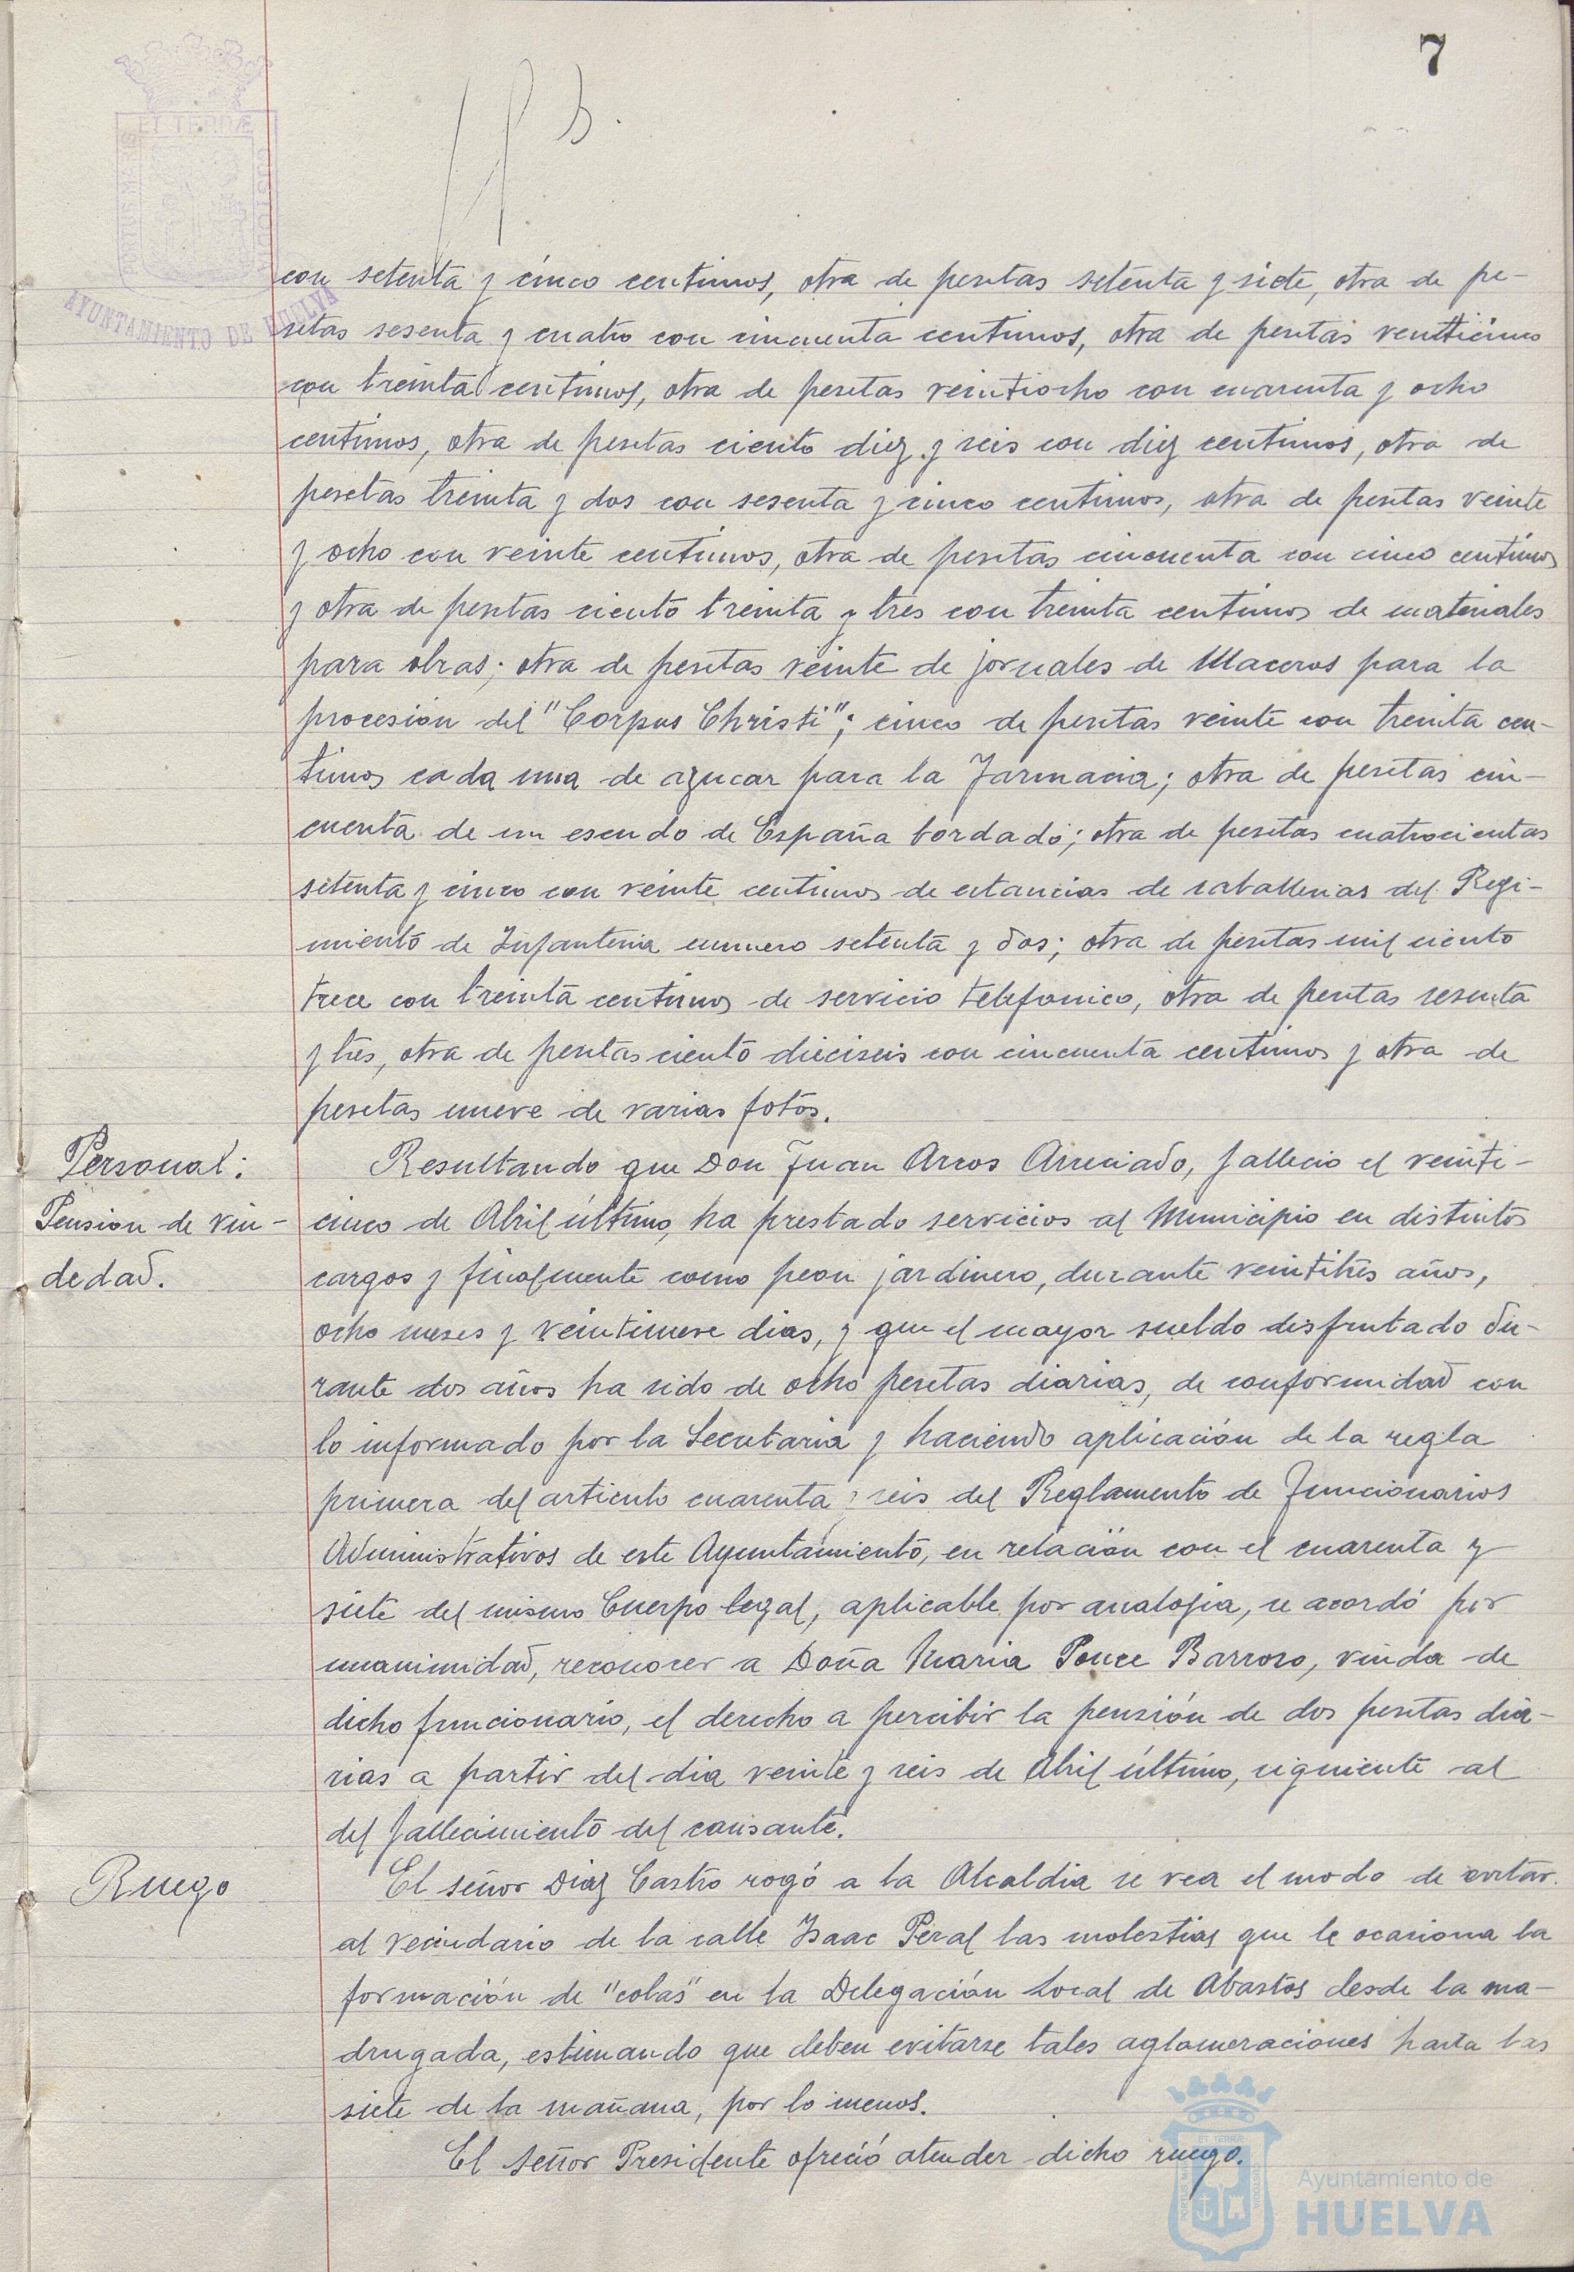 7
ET TERRÆ
AYUNTAMIENTO DE HUELVA
con setenta y cinco centimos, otra de pesetas setenta y siete, otra de pe-
setas sesenta y cuatro con cincuenta centimos, otra de pesetas venticinco
con treinta centimos, otra de pesetas veintiocho con cuarenta y ocho
centimos, otra de pesetas ciento diez y seis con diez centimos, otra de
pesetas treinta y dos con sesenta y cinco centimos, otra de pesetas veinte
y ocho con veinte centimos, otra de pesetas cincuenta con cinco centimos
y otra de pesetas ciento treinta y tres con treinta centimos de materiales
para obras; otra de pesetas veinte de jornales de Maceros para la
procesión del "Corpus Christi"; cinco de pesetas veinte con treinta cen-
timos cada una de azucar para la Farmacia; otra de pesetas cin-
cuenta de un escudo de España bordado; otra de pesetas cuatrocientas
setenta y cinco con veinte centimos de estancias de caballerias del Regi-
miento de Infanteria numero setenta y dos; otra de pesetas mil ciento
trece con treinta centimos de servicio telefonico, otra de pesetas sesenta
y tres, otra de pesetas ciento dieciseis con cincuenta centimos y otra de
pesetas nueve de varias fotos.
Personal:
Pension de viu-
dedad.
Resultando que Don Juan Arros Arreciado, fallecio el veinti-
cinco de Abril último, ha prestado servicios al Municipio en distintos
cargos y finalmente como peon jardinero, durante veintitrés años,
ocho meses y veintinueve dias, y que el mayor sueldo disfrutado du-
rante dos años ha sido de ocho pesetas diarias, de conformidad con
lo informado por la Secretaria y haciendo aplicación de la regla
primera del articulo cuarenta y seis del Reglamento de Funcionarios
Administrativos de este Ayuntamiento, en relación con el cuarenta y
siete del mismo Cuerpo legal, aplicable por analogia, se acordó por
unanimidad, reconocer a Doña Maria Ponce Barroso, viuda de
dicho funcionario, el derecho a percibir la pensión de dos pesetas dia-
rias a partir del dia veinte y seis de Abril último, siguiente al
del fallecimiento del causante.
Ruego
El señor Diaz Castro rogó a la Alcaldia se vea el modo de evitar
al vecindario de la calle Isaac Peral las molestias que le ocasiona la
formación de "colas" en la Delegación Local de Abastos desde la ma-
drugada, estimando que deben evitarse tales aglomeraciones hasta las
siete de la mañana, por lo menos.
El señor Presidente ofreció atender dicho ruego.
Ayuntamiento de
HUELVA